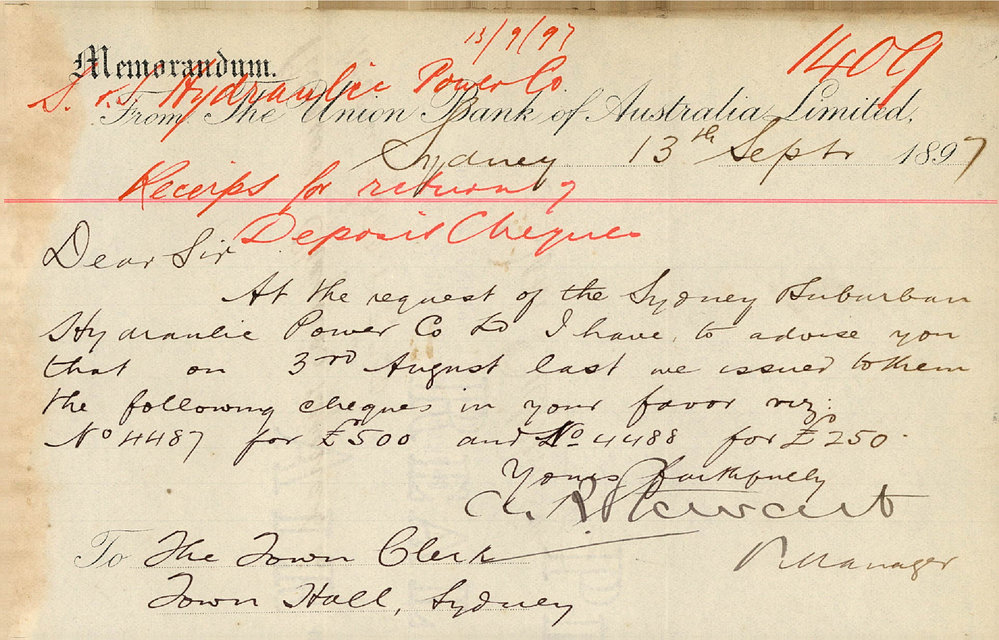 13/9/97
1409
Memorandum.
S. & S Hydraulic Power Co
From The Union Bank of Australia Limited,
Sydney 13th Septr 1897
Receipts for return of
Deposit Cheques
Dear Sir
At the request of the Sydney Suburban
Hydraulic Power Co Ld I have, to advise you
that on 3rd August last we issued to them
the following cheques in your favor viz:
No 4487 for £500 and No 4488 for £250.
Yours faithfully
Stewart
Manager
To The Town Clerk
Town Hall, Sydney